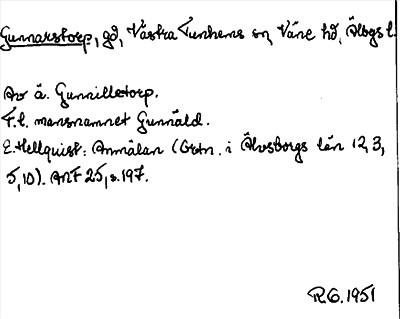 Gunnarstorp, gd, Västra Tunhems sn, Väne hd, Älvsgs l.
Av ä. Gunnilletorp.
F.l. mansnamnet Gunnäld.
E. Hellquist: Anmälan (Ortn. i Älvsborgs län 12, 3,
5, 10). ANF 25, s. 197.
R.G. 1951